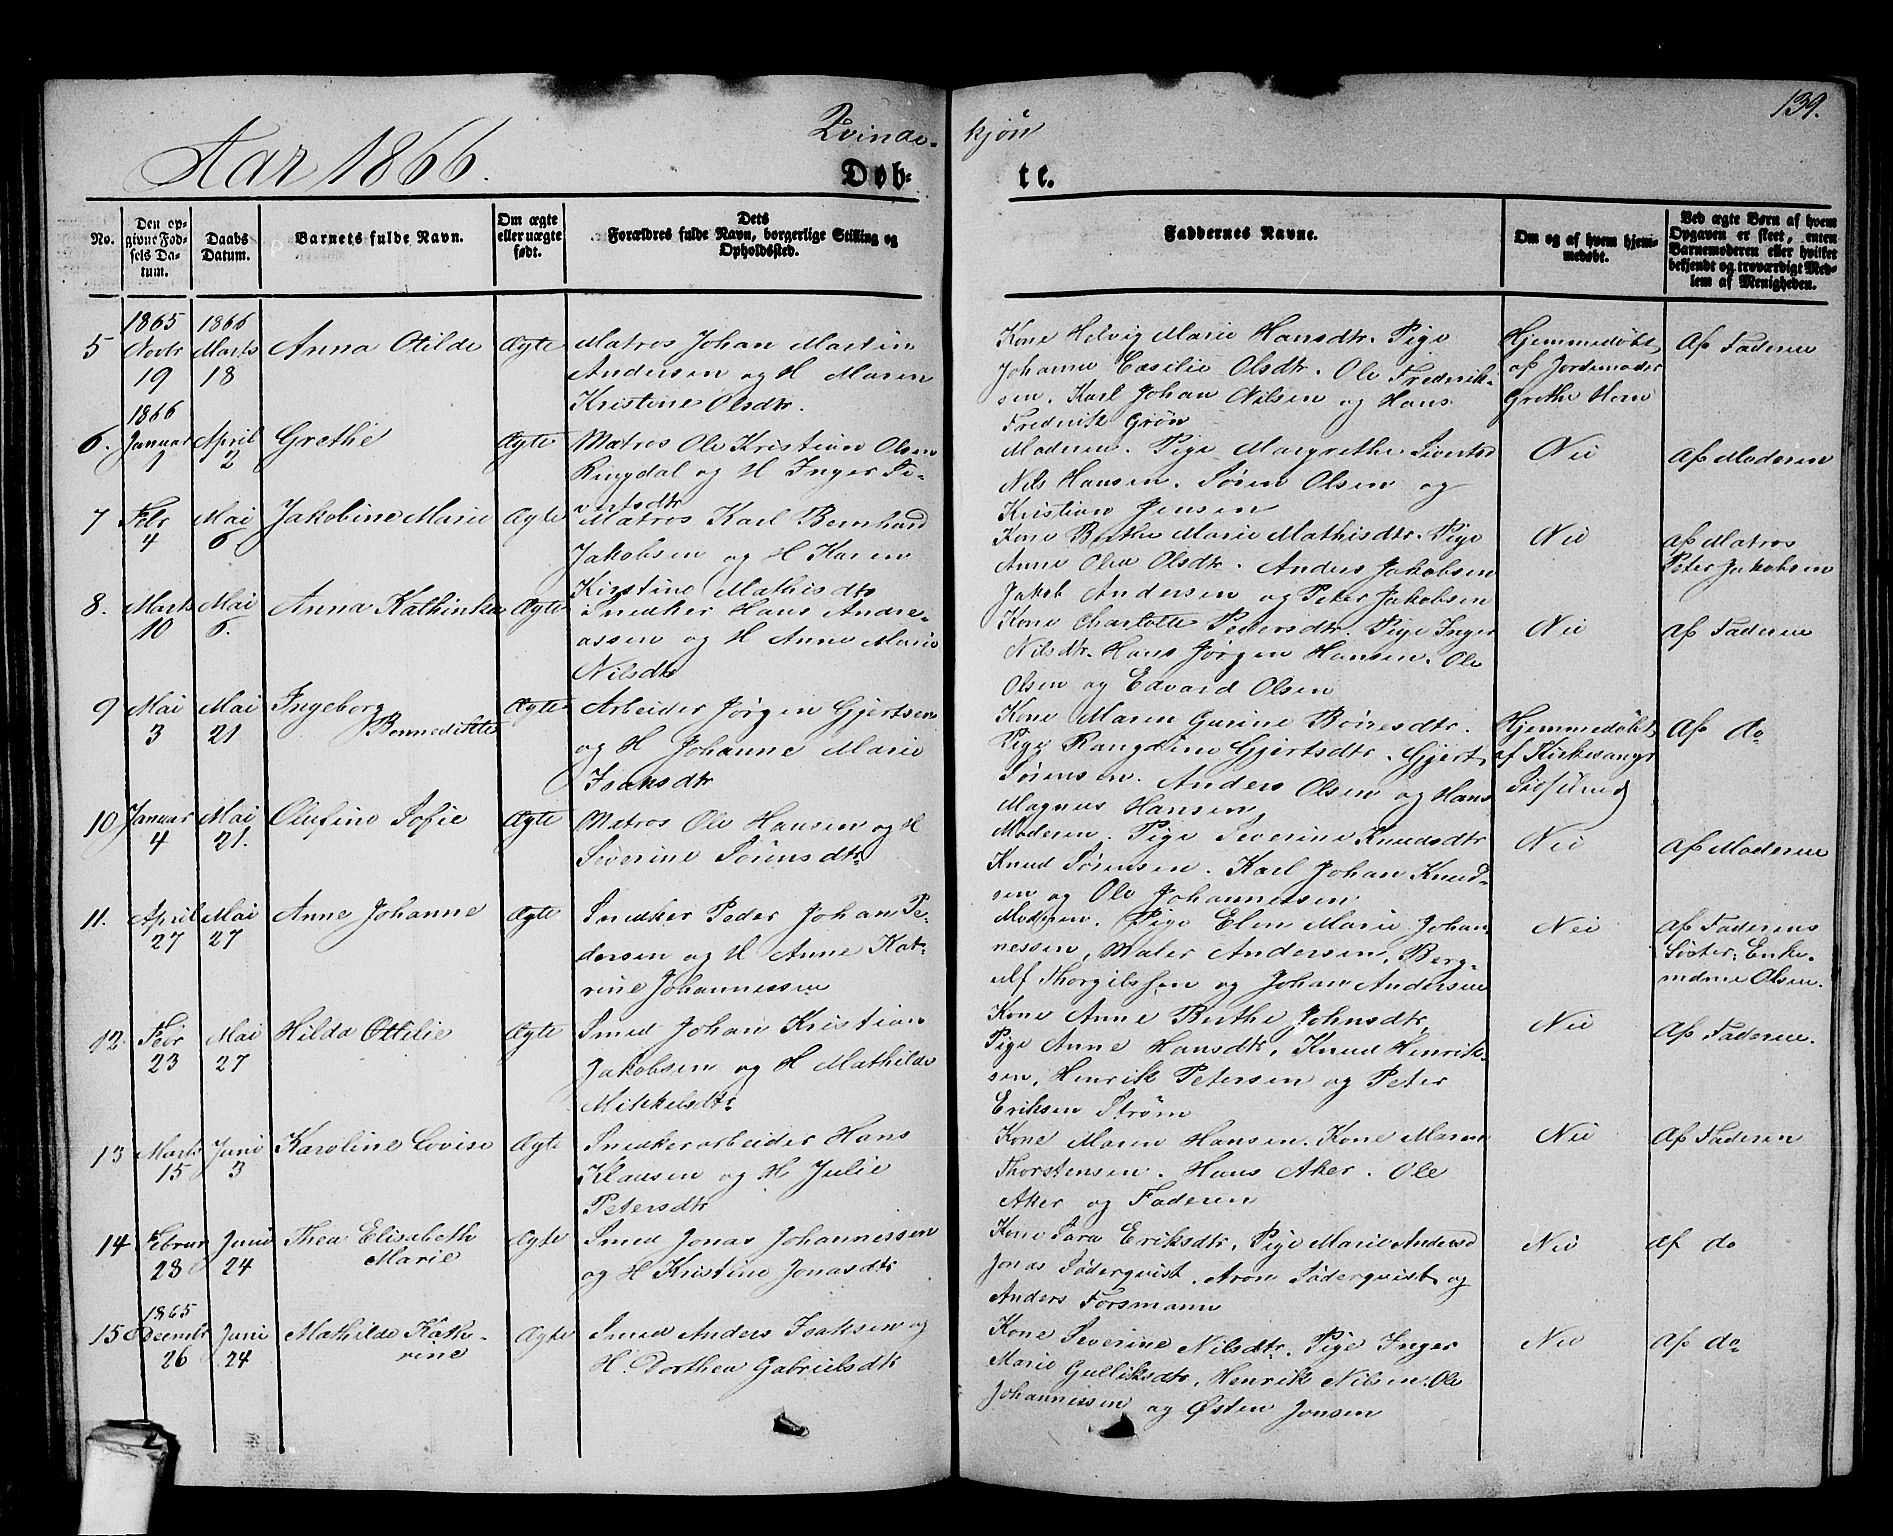 139.
Aar 1866.
Qvinde-
kjøn
Døb-
te.
No.
Den op-
givne Fød-
sels Da-
tum.
Daabs
Datum.
Barnets fulde Navn.
Om ægte
eller uægte
født.
Dets
Forældres fulde Navn, borgerlige Stilling og
Opholdssted.
Faddernes Navne.
Om og af hvem hjem-
medøbt.
Ved ægte Børn af hvem
Opgaven er skeet, enten
Barnemoderen eller hvilket
bekjendt og troværdigt Med-
lem af Menigheden.
5
1865
Novbr
19
1866
Marts
18
Anna Otilde
Ægte
Matros Johan Martin
Andersen og H Maren
Kristine Olsdtr.
Kone Helvig Marie Hansdtr. Pige
Johanne Cæsilie Olsdtr. Ole Frederik-
sen. Karl Johan Nilsen og Hans
Frederik Grøn
Hjemmedøbt
af Jordemoder
Grethe Horn
Af Faderen
6.
1866
Januar
1
April
2
Grethe
Ægte
Matros Ole Kristian Olsen
Ringdal og H Inger Si-
vertsdtr
Moderen. Pige Margrethe Sivertsd
Nils Hansen. Søren Olsen og
Kristian Jensen
Nei
Af Moderen
7
Febr
4
Mai
6
Jakobine Marie
Ægte
Matros Karl Bernhard
Jakobsen og H Karen
Kirstine Mathisdtr
Kone Berthe Marie Mathisdtr. Pige
Anne Olea Olsdtr. Anders Jakobsen
Jakob Andersen og Peter Jakobsen
Nei
af Matros
Peter Jakobsen
8.
Marts
10
Mai
6.
Anna Kathinka
Ægte
Snedker Hans Andre-
assen og H Anne Marie
Nilsdtr
Kone Charlotte Pedersdtr. Pige Inger
Nilsdtr. Hans Jørgen Hansen. Ole
Olsen og Edvard Olsen
Nei
Af Faderen
9
Mai
3
Mai
21
Ingeborg
Bennedikte
Ægte
Arbeider Jørgen Gjertsen
og H Johanne Marie
Isaksdtr
Kone Maren Gurine Børresdtr.
Pige Rangdine Gjertsdtr. Gjert
Sørensen. Anders Olsen og Hans
Magnus Hansen
Hjemmedøbt
af Kirkesanger
Af do
10
Januar
4
Mai
21.
Olufine Sofie
Ægte
Matros Ole Hansen og H
Severine Sørensdtr
Moderen. Pige Severine Knudsdtr
Knud Sørensen. Karl Johan Knud-
sen og Ole Johannessen
Nei
Af Moderen
11.
April
27
Mai
27
Anne Johanne
Ægte
Snedker Peder Johan Pe-
dersen og H Anne Kat-
rine Johannessen
Moderen. Pige Elen Marie Johan-
nessen, Maler Andersen, Berg-
Alf Thorgilssen og Johan Andersen
Nei
Af Faderens
Søster, Enke-
madme Olsen.
12
Febr
23
Mai
27
Hilda Ottilie
Ægte
Smed Johan Kristian
Jakobsen og H Mathilde
Mikkelsdtr
Kone Anne Berthe Johnsdtr,
Pige Anne Hansdtr, Knud Henrik-
sen, Henrik Petersen og Peter
Eriksen Strøm
Nei
Af Faderen.
13
Marts
15
Juni
3
Karoline Lovise
Ægte
Snedkerarbeider Hans
Klausen og H Julie
Petersdtr
Kone Maren Hansen. Kone Maren
Thorstensen. Hans Aker. Ole
Aker og Faderen
Nei
Af Faderen
14
Februar
28
Juni
24
Thea Elisabeth
Marie
Ægte
Smed Jonas Johannessen
og H Kristine Jonasdtr
Kone Sara Eriksdtr, Pige Marie Andersd
Jonas Söderqvist. Aron Söderqvist og
Anders Forsmann
Nei
Af do
15
1865
Decembr
26
Juni
24
Mathilde Kath-
rine
Ægte
Smed Anders Isaksen og
H. Dorthea Gabrielsdtr
Kone Severine Nilsdtr. Pige Inger
Marie Gulliksdtr, Henrik Nilsen. Ole
Johannessen og Østen Jonsen
Nei
Af do